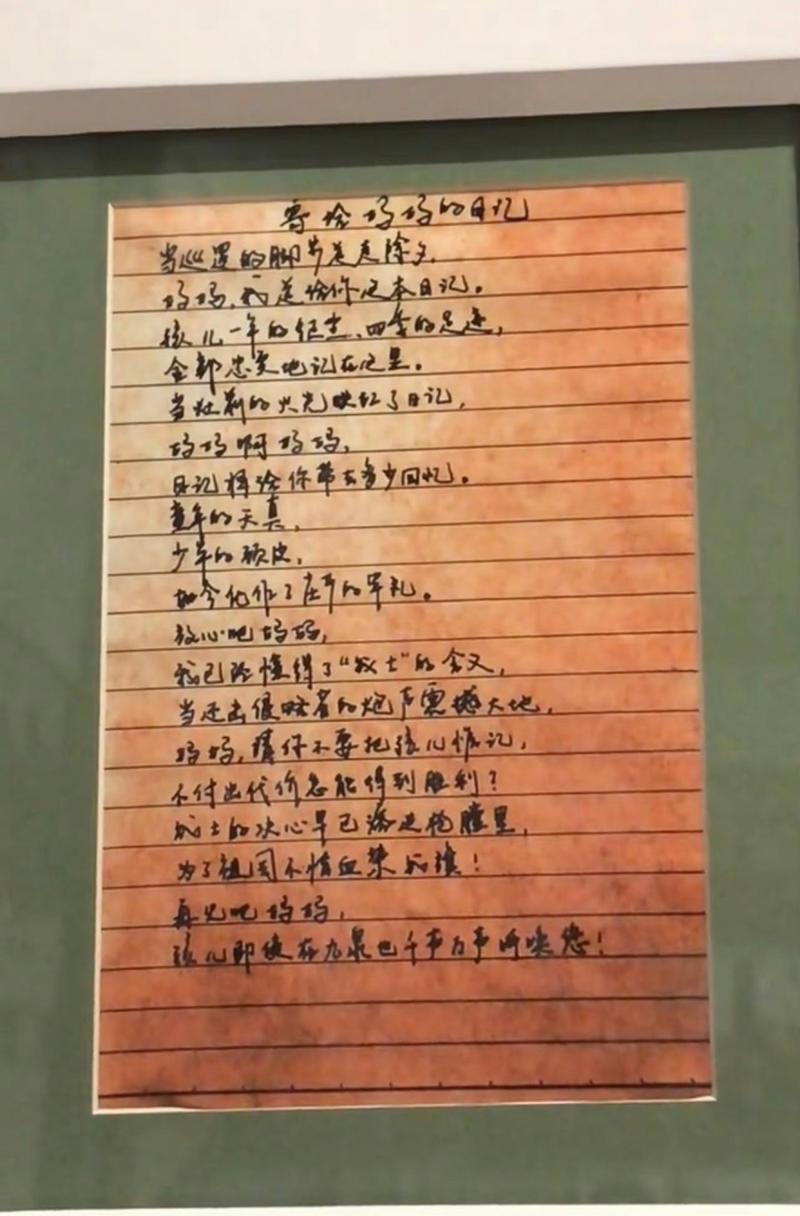 寄给妈妈的日记
当巡逻的脚步送走除夕，
妈妈，我送给你这本日记。
孩儿一年的经历、四季的足迹，
全部忠实地记在这里。
当灶前的火光映红了日记，
妈妈啊妈妈，
日记将给你带去多少回忆。
童年的天真，
少年的顽皮，
如今化作了庄严的军礼。
放心吧妈妈，
我已经懂得了“战士”的含义，
当还击侵略者的炮声震撼大地，
妈妈，请你不要把孩儿惦记，
不付出代价怎能得到胜利？
战士的决心早已溶进枪膛里，
为了祖国不惜血染战旗！
再见吧妈妈，
孩儿即使在九泉也千声万声呼唤您！